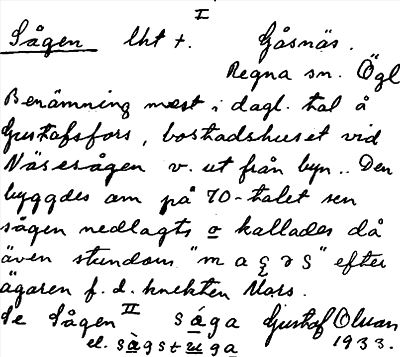 I
Sågen lht +. Gåsnäs.
Regna sn. Ögl
Benämning mest i dagl. tal å
Gustafsfors, bostadshuset vid
Näsesågen v. ut från byn.. Den
byggdes om på 70-talet sen
sågen nedlagts o kallades då
även stundom "masəs" efter
ägaren f. d. knekten Mars.
Se Sågen II såga Gustaf Olsson
el. sågstuga 1933.